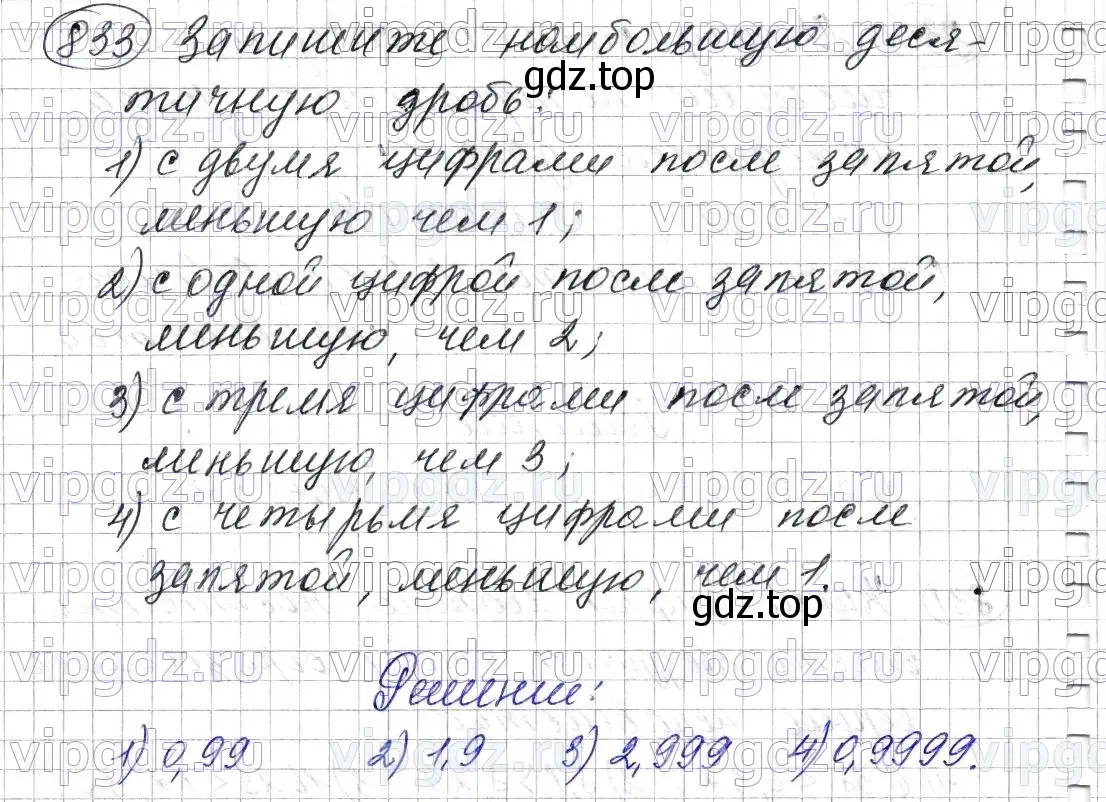 833 Запишите наибольшую деся-
gdz.top
тичную дробь:
1) с двумя цифрами после запятой,
меньшую чем 1;
2) с одной цифрой после запятой,
меньшую, чем 2;
3) с тремя цифрами после запятой,
меньшую, чем 3;
4) с четырьмя цифрами после
запятой, меньшую, чем 1.
gdz.top
Решение:
1) 0,99 2) 1,9 3) 2,999 4) 0,9999.
vipgdz.ru